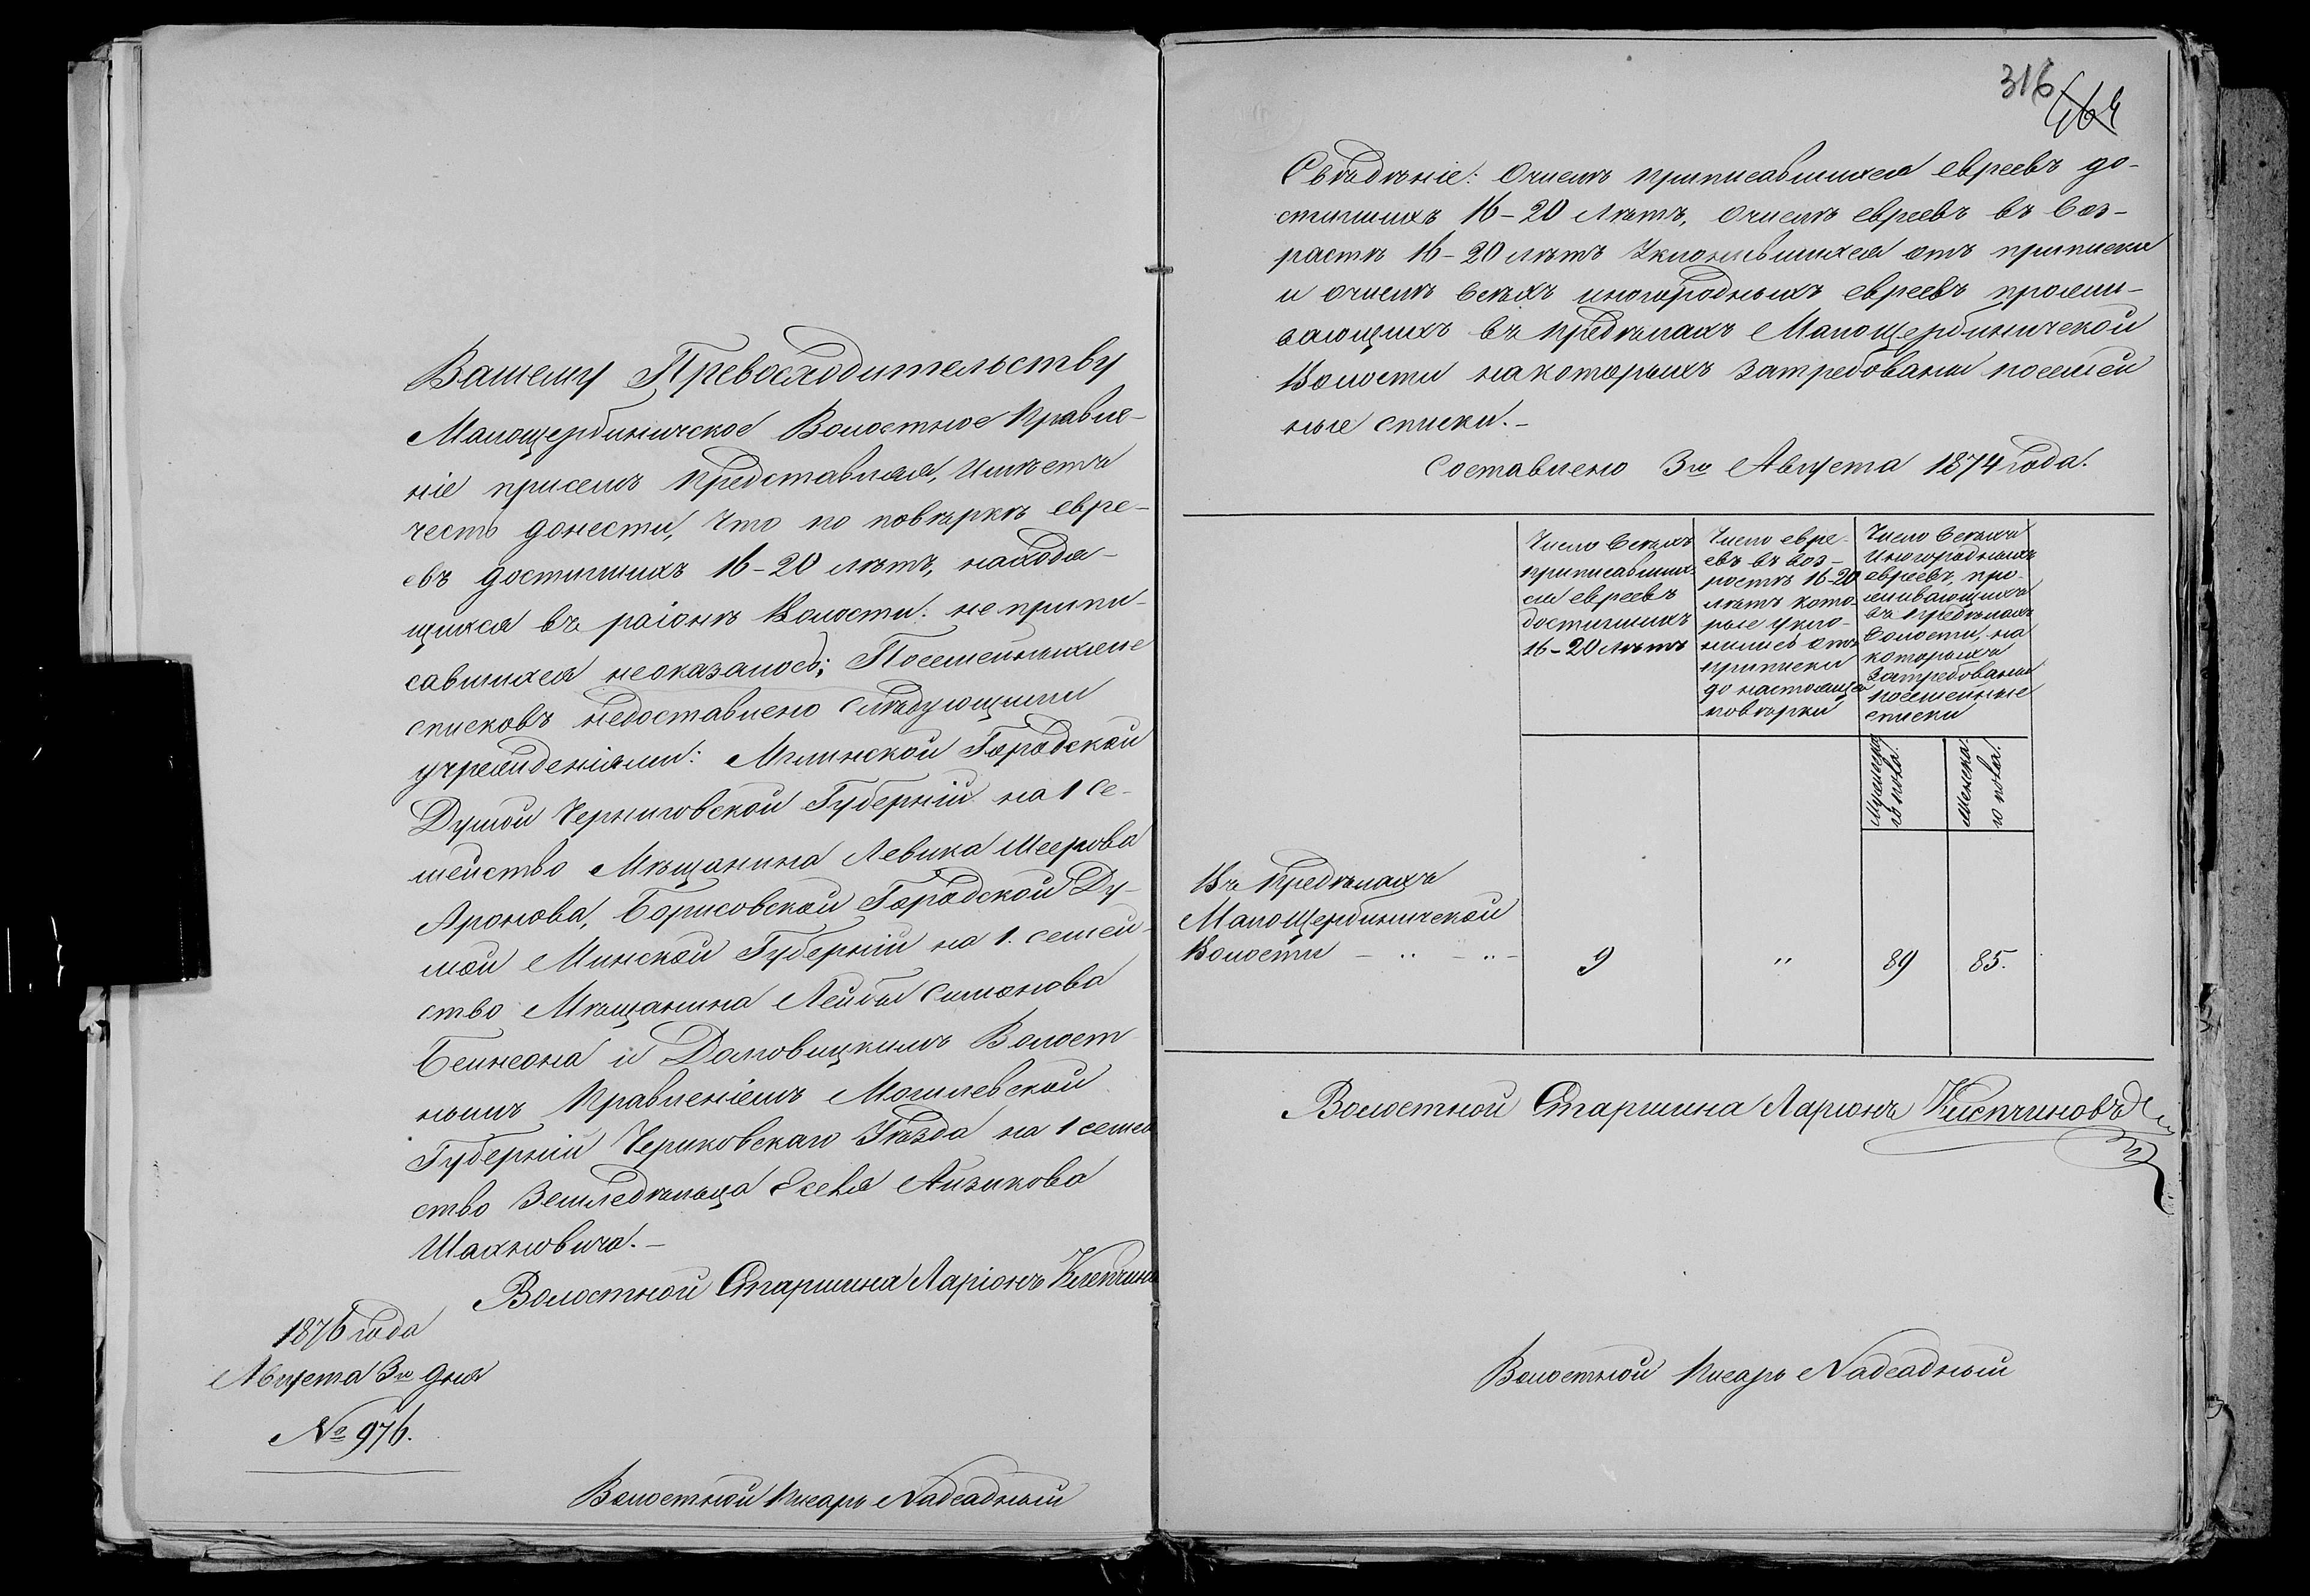 Вашему Превосходительству
Малощербиничское Волостное Правле-
ніе присемъ представляя, имѣетъ
честь донести, что по повѣркѣ евре-
евъ достигшихъ 16-20 лѣтъ, находя-
щихся въ раіонѣ Волости: не припи-
савшихся неоказалось; Посемейныхже
списковъ недоставлено слѣдующими
учрежденіями: Мглинской Городской
Думой Черниговской Губерніи на 1 се-
мейство Мѣщанина Левика Меерова
Аронова, Борисовской Городской Ду-
мой Минской Губерніи на 1. семей-
ство Мѣщанина Лейбы Симонова
Бейнсона и Долговицкимъ Волост
нымъ Правленіемъ Могилевской
Губерніи Чериковскаго Уѣзда на 1 семей
ство Земледѣльца Евеля Айзикова
Шахновича.-
Волостной Старшина Ларіонъ
1876 года
Августа 3го дня
№ 976.
Волостной Писарь Надсадный
316
464
Свѣдѣніе: Очислѣ приписавшихся евреевъ до-
стигшихъ 16-20 лѣтъ, очислѣ евреевъ въ воз-
растѣ 16-20 лѣтъ уклонившихся отъ приписки
и очислѣ всѣхъ иногородныхъ евреевъ прожи-
вающихъ въ предѣлахъ Малощербиничской
Волости накоторыхъ затребованы посемей
ные списки.-
Составлено 3го Августа 1874 года.
Число всѣхъ
приписавших-
ся евреевъ
достигшихъ
16-20 лѣтъ
Число евре-
евъ въ воз-
растѣ 16-20
лѣтъ кото-
рые укло-
нились отъ
приписки
до настоящей
повѣрки
Число всѣхъ
Иногородныхъ
евреевъ, про-
живающихъ
въ предѣлахъ
Волости, на
которыхъ
затребованы
посемейные
списки
Мужеска
го пола.
Женска
го пола.
Въ предѣлахъ
Малощербиничской
Волости - .. - .. -
9 " 89 85.
Волостной Старшина Ларіонъ
Волостной Писарь Надсадный